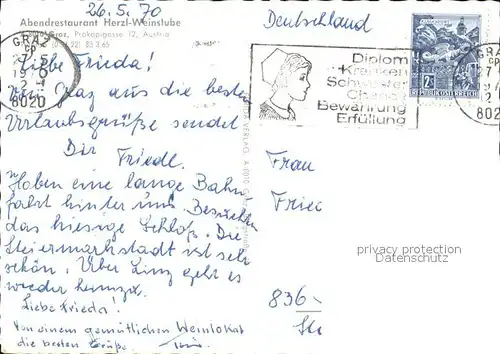 26.5.70
Abendrestaurant Herzl-Weinstube
8010 Graz, Prokopigasse 12, Austria
83 3 65
Liebe Frieda!
Graz aus die besten
Urlaubsgrüße sendet
Dir Friedl.
Haben eine lange Bahn-
fahrt hinter uns. Besuchten
das hiesige Schloß. Die
Steiermarkstadt ist sehr
schön. Über Linz geht es
wieder heimzu.
Liebe Frieda!
Von einem gemütlichen Weinlokal
die besten Grüße.
VERLAG, A-8010
Deutschland
GRAZ
CP
1970
8020
Diplom
Kranken
Schwester
Chance
Bewährung
Erfüllung
REPUBLIK ÖSTERREICH
GRAZ
CP
802
Frau
Fried
836
privacy protection
Datenschutz